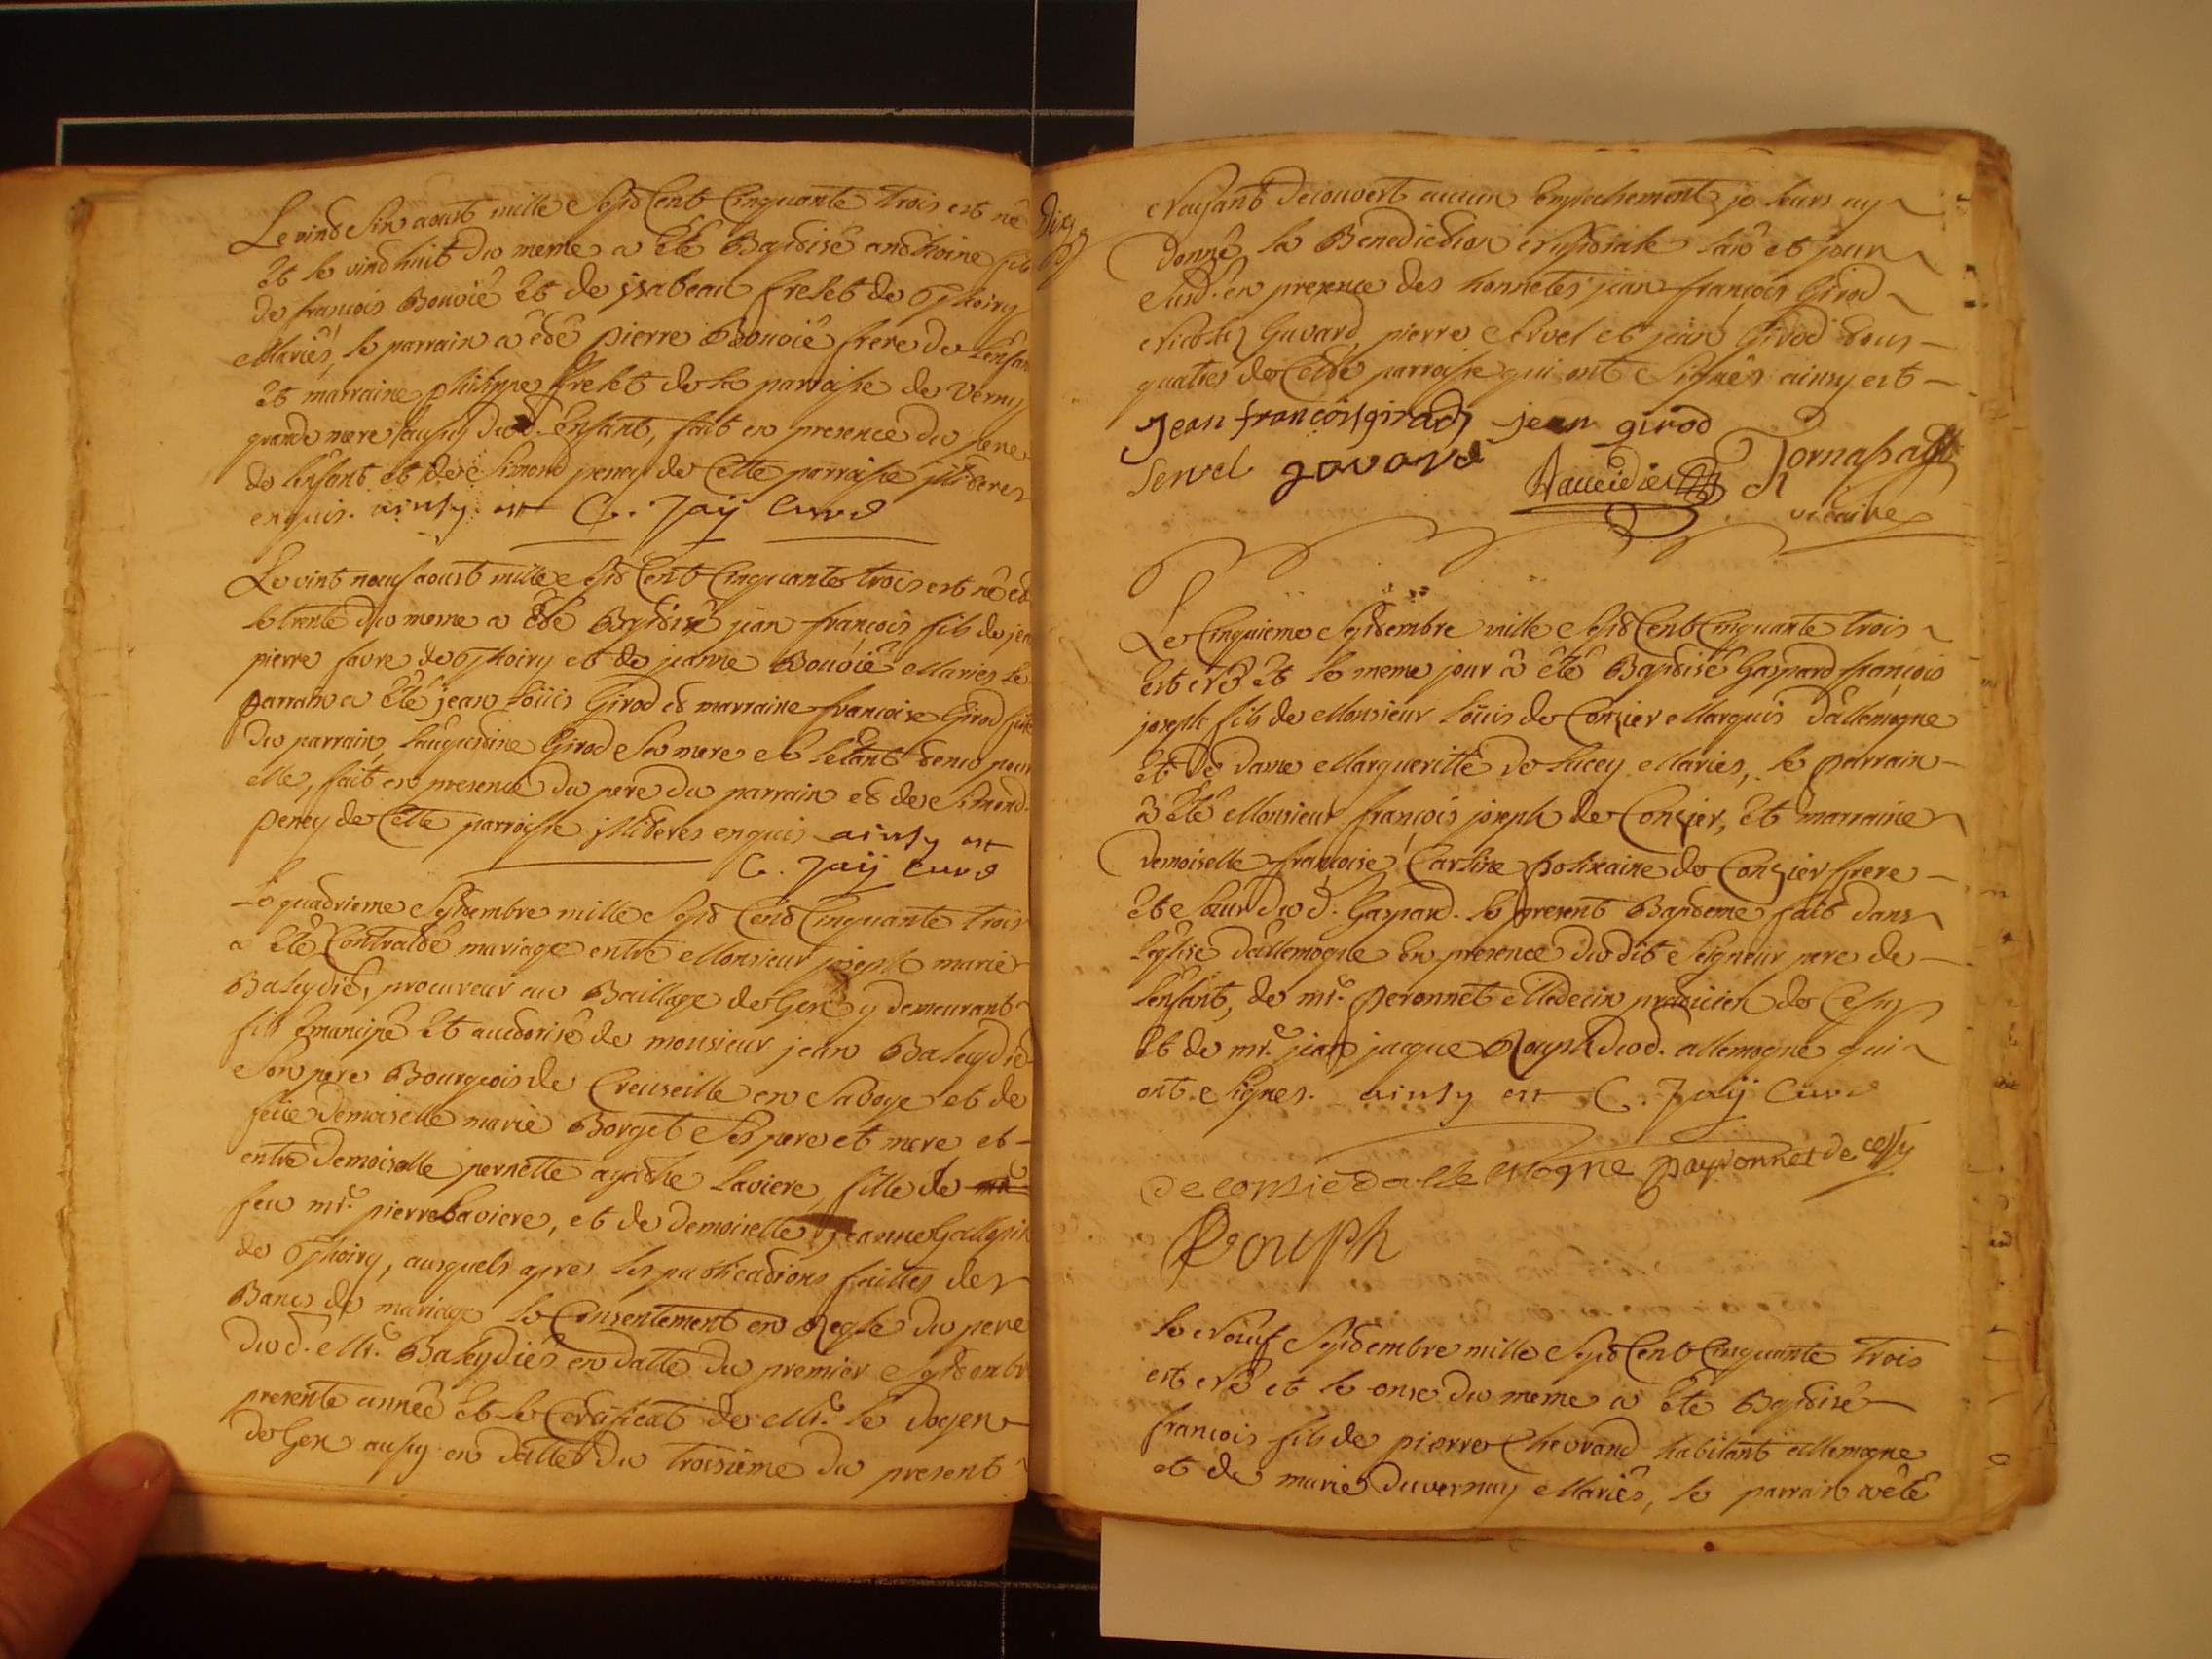 Le vind Six aoust mille Sepd Cent Cinquante trois est né
Et le vind huit du meme a Eté Bapdisé andhoine fils
de françois Bouvié Et de ysabeau freset de Thoiry
Mariés, le parrain a edé pierre Bouvié frere de Lenfan
Et marraine philippe freset de la parroisse de Verny
grande mere aussy dud. Enfant, fait en presence du pere
de lenfant et de Simond peney de Cette parroisse illiderés
enquis. ainsy est C. Jaij Curé
Le vint neuf aoust mille Sepd Cent Cinquante trois est né ed
le trente du meme a Edé Bapdisé jean françois fils de jean
pierre favre de Thoiry et de jeanne Bouvié Mariés Le
parrain a Eté jean Loüis Girod ed marraine françoise Girod
du parrain, Girod Sa mere et Letant denu pour
elle, fait en presence du pere du parrain ed de Simond
peney de Cette parroisse illiderés enquis ainsy est
C. Jaij Curé
Le quadrieme Sepdembre mille Sepd Cend Cinquante trois
a Eté Contraldé mariage entre Monsieur joseph marie
Baleydié, procureur au Baillage de Gex y demeurant
fils Emancipé Et audorisé de monsieur jean Baleydié
Son pere Bourgeois de Creuseille en Savoye et de
feüe demoiselle marie Borget Ses pere et mere, et
entre demoiselle pernette agadhe Laviere, fille de
feu mr. pierre Laviere, et de demoiselle jeanne
de Thoiry, ausquels apres les publicadions faittes des
Bancs de mariage le Consentement en Regle du pere
dud. Mr. Baleydiés en datte du premier Sepdembre
presente année Et le Cerdificat de Mr. le doyen
de Gex aussy en datte du troisieme du present
Nayant decouvert aucun Empechement je leurs ay
donné la Benedicdion Nupdiale Lan et jour
Susd. en presence des honnetes jean françois Girod
Nicolas Gavard, pierre Servel et jean Girod tous
quatres de Cette parroisse qui ont Signés ainsy est
jean françois girod jean girod
Servel gavard
vicaire
Le Cinquieme Sepdembre mille Sepd Cent Cinquante trois
Est Né Et le meme jour a été Bapdisé Gaspard françois
joseph fils de Monsieur Loüis de Conzier Marquis d'allemogne
Et de dame Margueritte de Lucey Mariés, le parrain
a Eté Monsieur françois joseph de Conzier, Et marraine
demoiselle françoise de Conzier frere
Et Sœur dud. Gaspard. le present Bapdeme fait dans
Leglise d'allemogne En presence dudit Seigneur pere de
Lenfant, de mr. peronnet Medecin pradicien de Cessy
Et de mr. jean jacque Rouph dud. allemogne qui
ont Signés. ainsy est C. Jaij Curé
De consié dallemogne payronnet de cessy
Rouph
le Neuf Sepdembre mille Sepd Cent Cinquante trois
est Né et le onze du meme a Eté Bapdisé
francois fils de pierre Chevrand habitant allemogne
et de marie Duvernay Mariés, le parrain a été